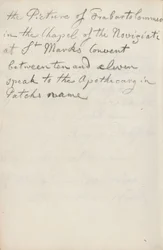 the Picture of Fra Bartolommeo
in the Chapel of the Noviziati
at St Marks Convent
between ten and eleven
speak to the Apothecary in
Patchs name